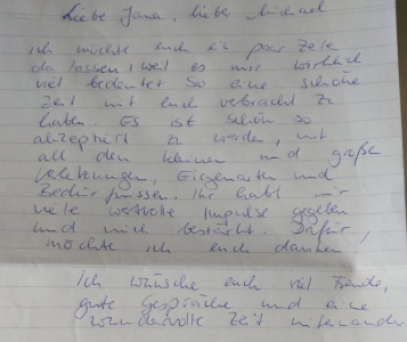 Liebe Jana, lieber Michael
ich möchte euch ein paar Zeilen
da lassen, weil es mir wirklich
viel bedeutet so eine schöne
Zeit mit euch verbracht zu
haben. Es ist schön so
akzeptiert zu werden, mit
all den kleinen und großen
Eigenarten und
Bedürfnissen. Ihr habt mir
viele wertvolle Impulse gegeben
und mich bestärkt. Dafür
möchte ich euch danken!
ich wünsche euch viel Freude,
gute Gespräche und eine
wundervolle Zeit miteinander